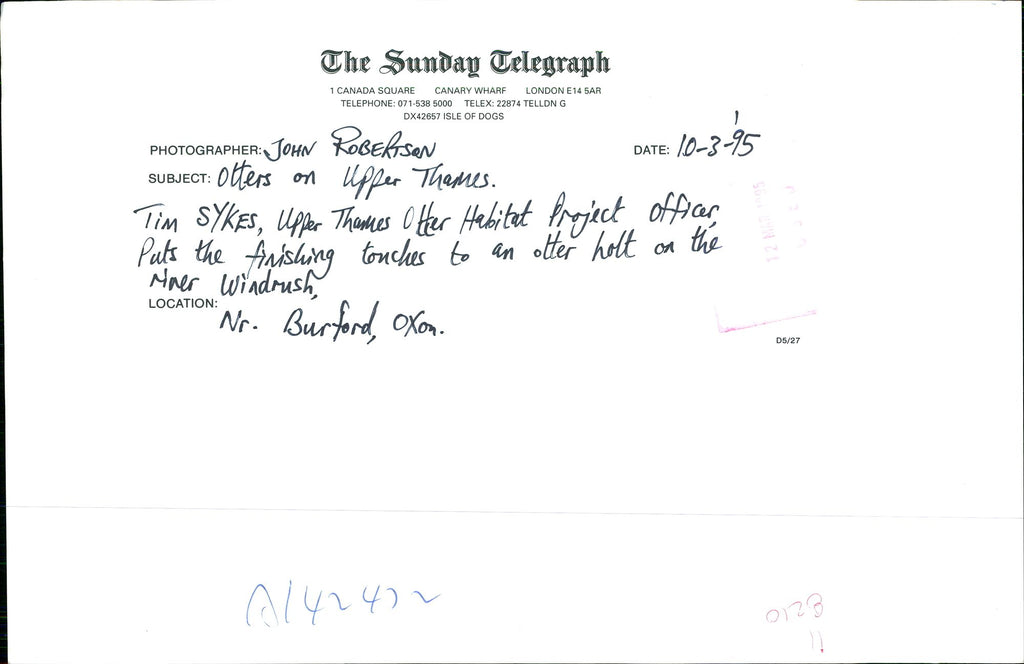 The Sunday Telegraph
1 CANADA SQUARE CANARY WHARF LONDON E14 5AR
TELEPHONE: 071-538 5000 TELEX: 22874 TELLDN G
DX42657 ISLE OF DOGS
PHOTOGRAPHER: JOHN ROBERTSON DATE: 10-3-'95
SUBJECT: Otters on Upper Thames.
Tim SYKES, Upper Thames Otter Habitat Project officer,
Puts the finishing touches to an otter holt on the
river Windrush,
LOCATION:
Nr. Burford, Oxon.
12 MAR 1995
D5/27
0128
11